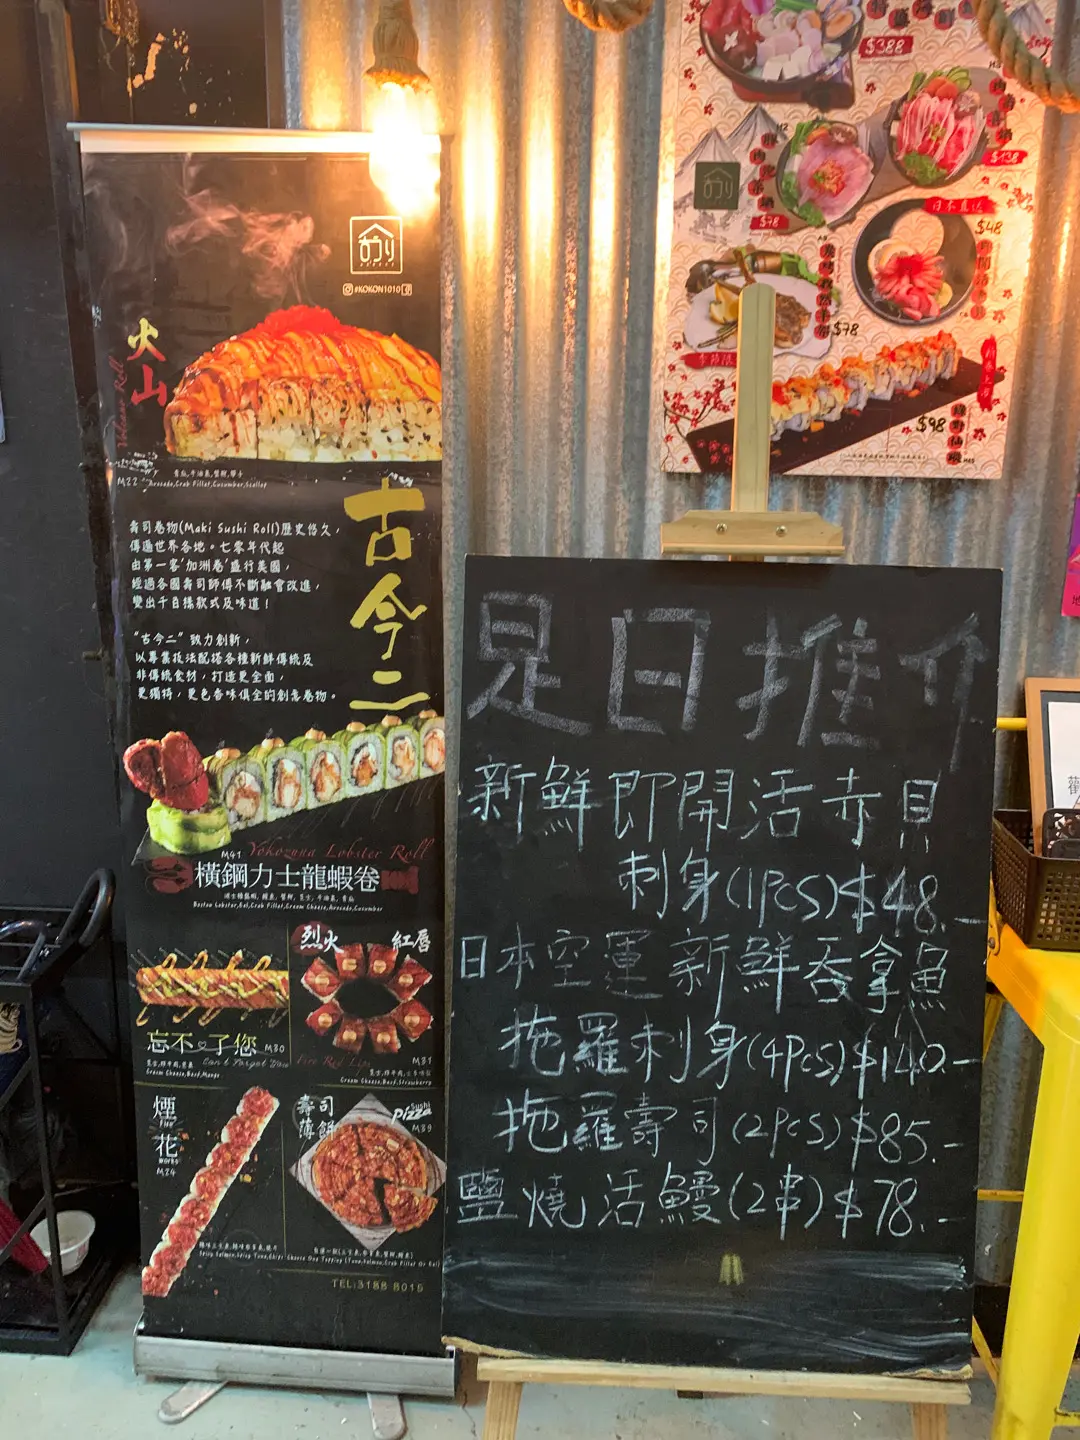 #KOKON1010
火山
M22
Avocado,Crab Fillet,Cucumber,Scallop
古今二
壽司卷物(Maki Sushi Roll)歷史悠久，
傳遍世界各地。七零年代起
由第一客'加洲卷'盛行美國，
經過各國壽司師傅不斷融會改進，
變出千百樣款式及味道！
"古今二" 致力創新，
以專業技法配搭各種新鮮傳統及
非傳統食材，打造更全面，
更獨特，更色香味俱全的創意卷物。
M41 Yokozuna Lobster Roll
橫鋼力士龍蝦卷
Boston Lobster,Eel,Crab Fillet,Cream Cheese,Avocado,Cucumber
忘不了您 M30
Can't Forget You
Cream Cheese,Beef,Mango
烈火 紅唇
Fire Red Lips M31
Cream Cheese,Beef,Strawberry
煙花
Fire works
M24
壽司薄餅
Sushi Pizza
M39
TEL:3188 8015
$388
$138
$78
日本直送
$48
$78
$98
是日推介
新鮮即開活赤貝
刺身(1PCS)$48.-
日本空運新鮮吞拿魚
拖羅刺身(4PCS)$140.-
拖羅壽司(2PCS)$85.-
鹽燒活鰻(2串)$78.-